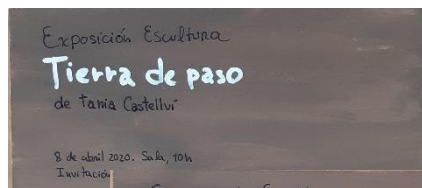 Exposición Escultura
Tierra de paso
de Tania Castellví
8 de abril 2020. Sala, 10h
Invitación